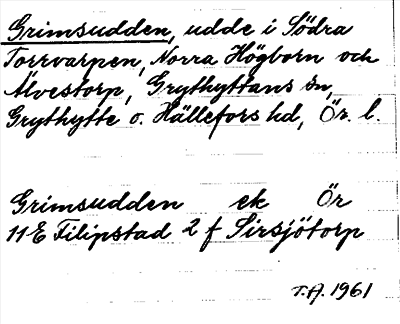 Grimsudden, udde i Södra
Torrvarpen, Norra Högborn och
Älvestorp, Grythyttans sn,
Grythytte o. Hällefors hd, Ör. l.
Grimsudden ek Ör
11E Filipstad 2 f Sirsjötorp
T.A. 1961